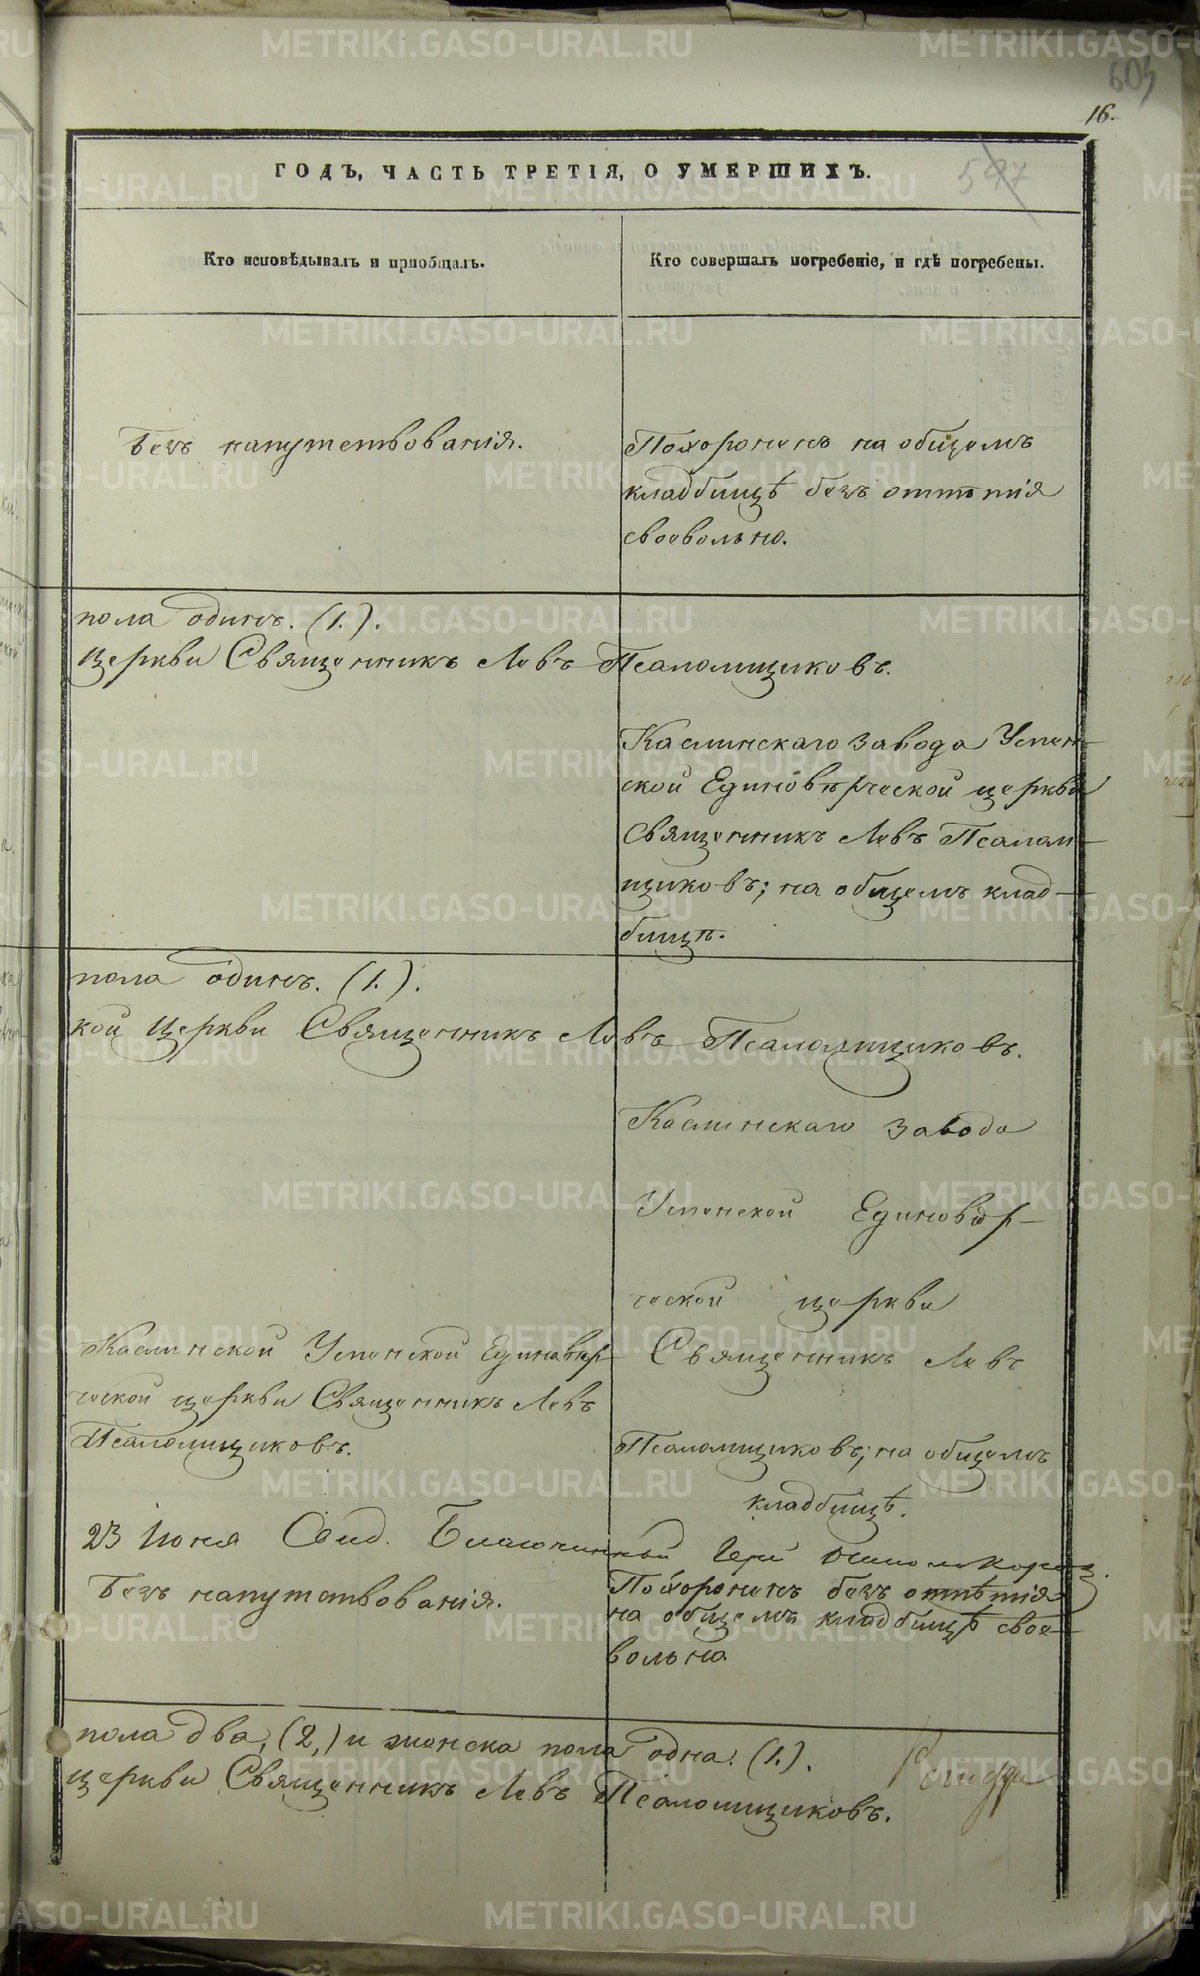 603
16.
ГОДЪ, ЧАСТЬ ТРЕТІЯ, О УМЕРШИХЪ.
597
Кто исповѣдывалъ и пріобщалъ.
Кто совершалъ погребеніе, и гдѣ погребены.
Безъ напутствованія.
Похороненъ на общемъ
кладбищѣ безъ отпѣтія
своевольно.
пола одинъ. (1.).
Церкви Священникъ Левъ Псаломщиковъ.
Каслинскаго завода Успен-
ской Единовѣрческой церкви
Священникъ Левъ Псалом-
щиковъ; на общемъ клад-
бищѣ.
пола одинъ. (1.).
кой Церкви Священникъ Левъ Псаломщиковъ.
Каслинскаго завода
Успенской Единовѣр-
ческой церкви
Священникъ Левъ
Псаломщиковъ; на общемъ
кладбищѣ.
Каслинской Успенской Единовѣр-
ческой церкви Священникъ Левъ
Псаломщиковъ.
23 Іюня Свид. Благочинный
Безъ напутствованія.
Похороненъ безъ отпѣтія
на общемъ кладбищѣ свое-
вольно.
пола два, (2,) и женска пола одна. (1.).
церкви Священникъ Левъ Псаломщиковъ.
METRIKI.GASO-URAL.RU